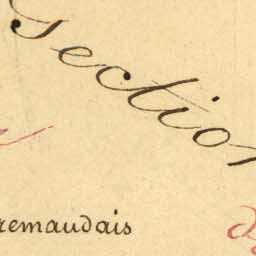 section
remaudais